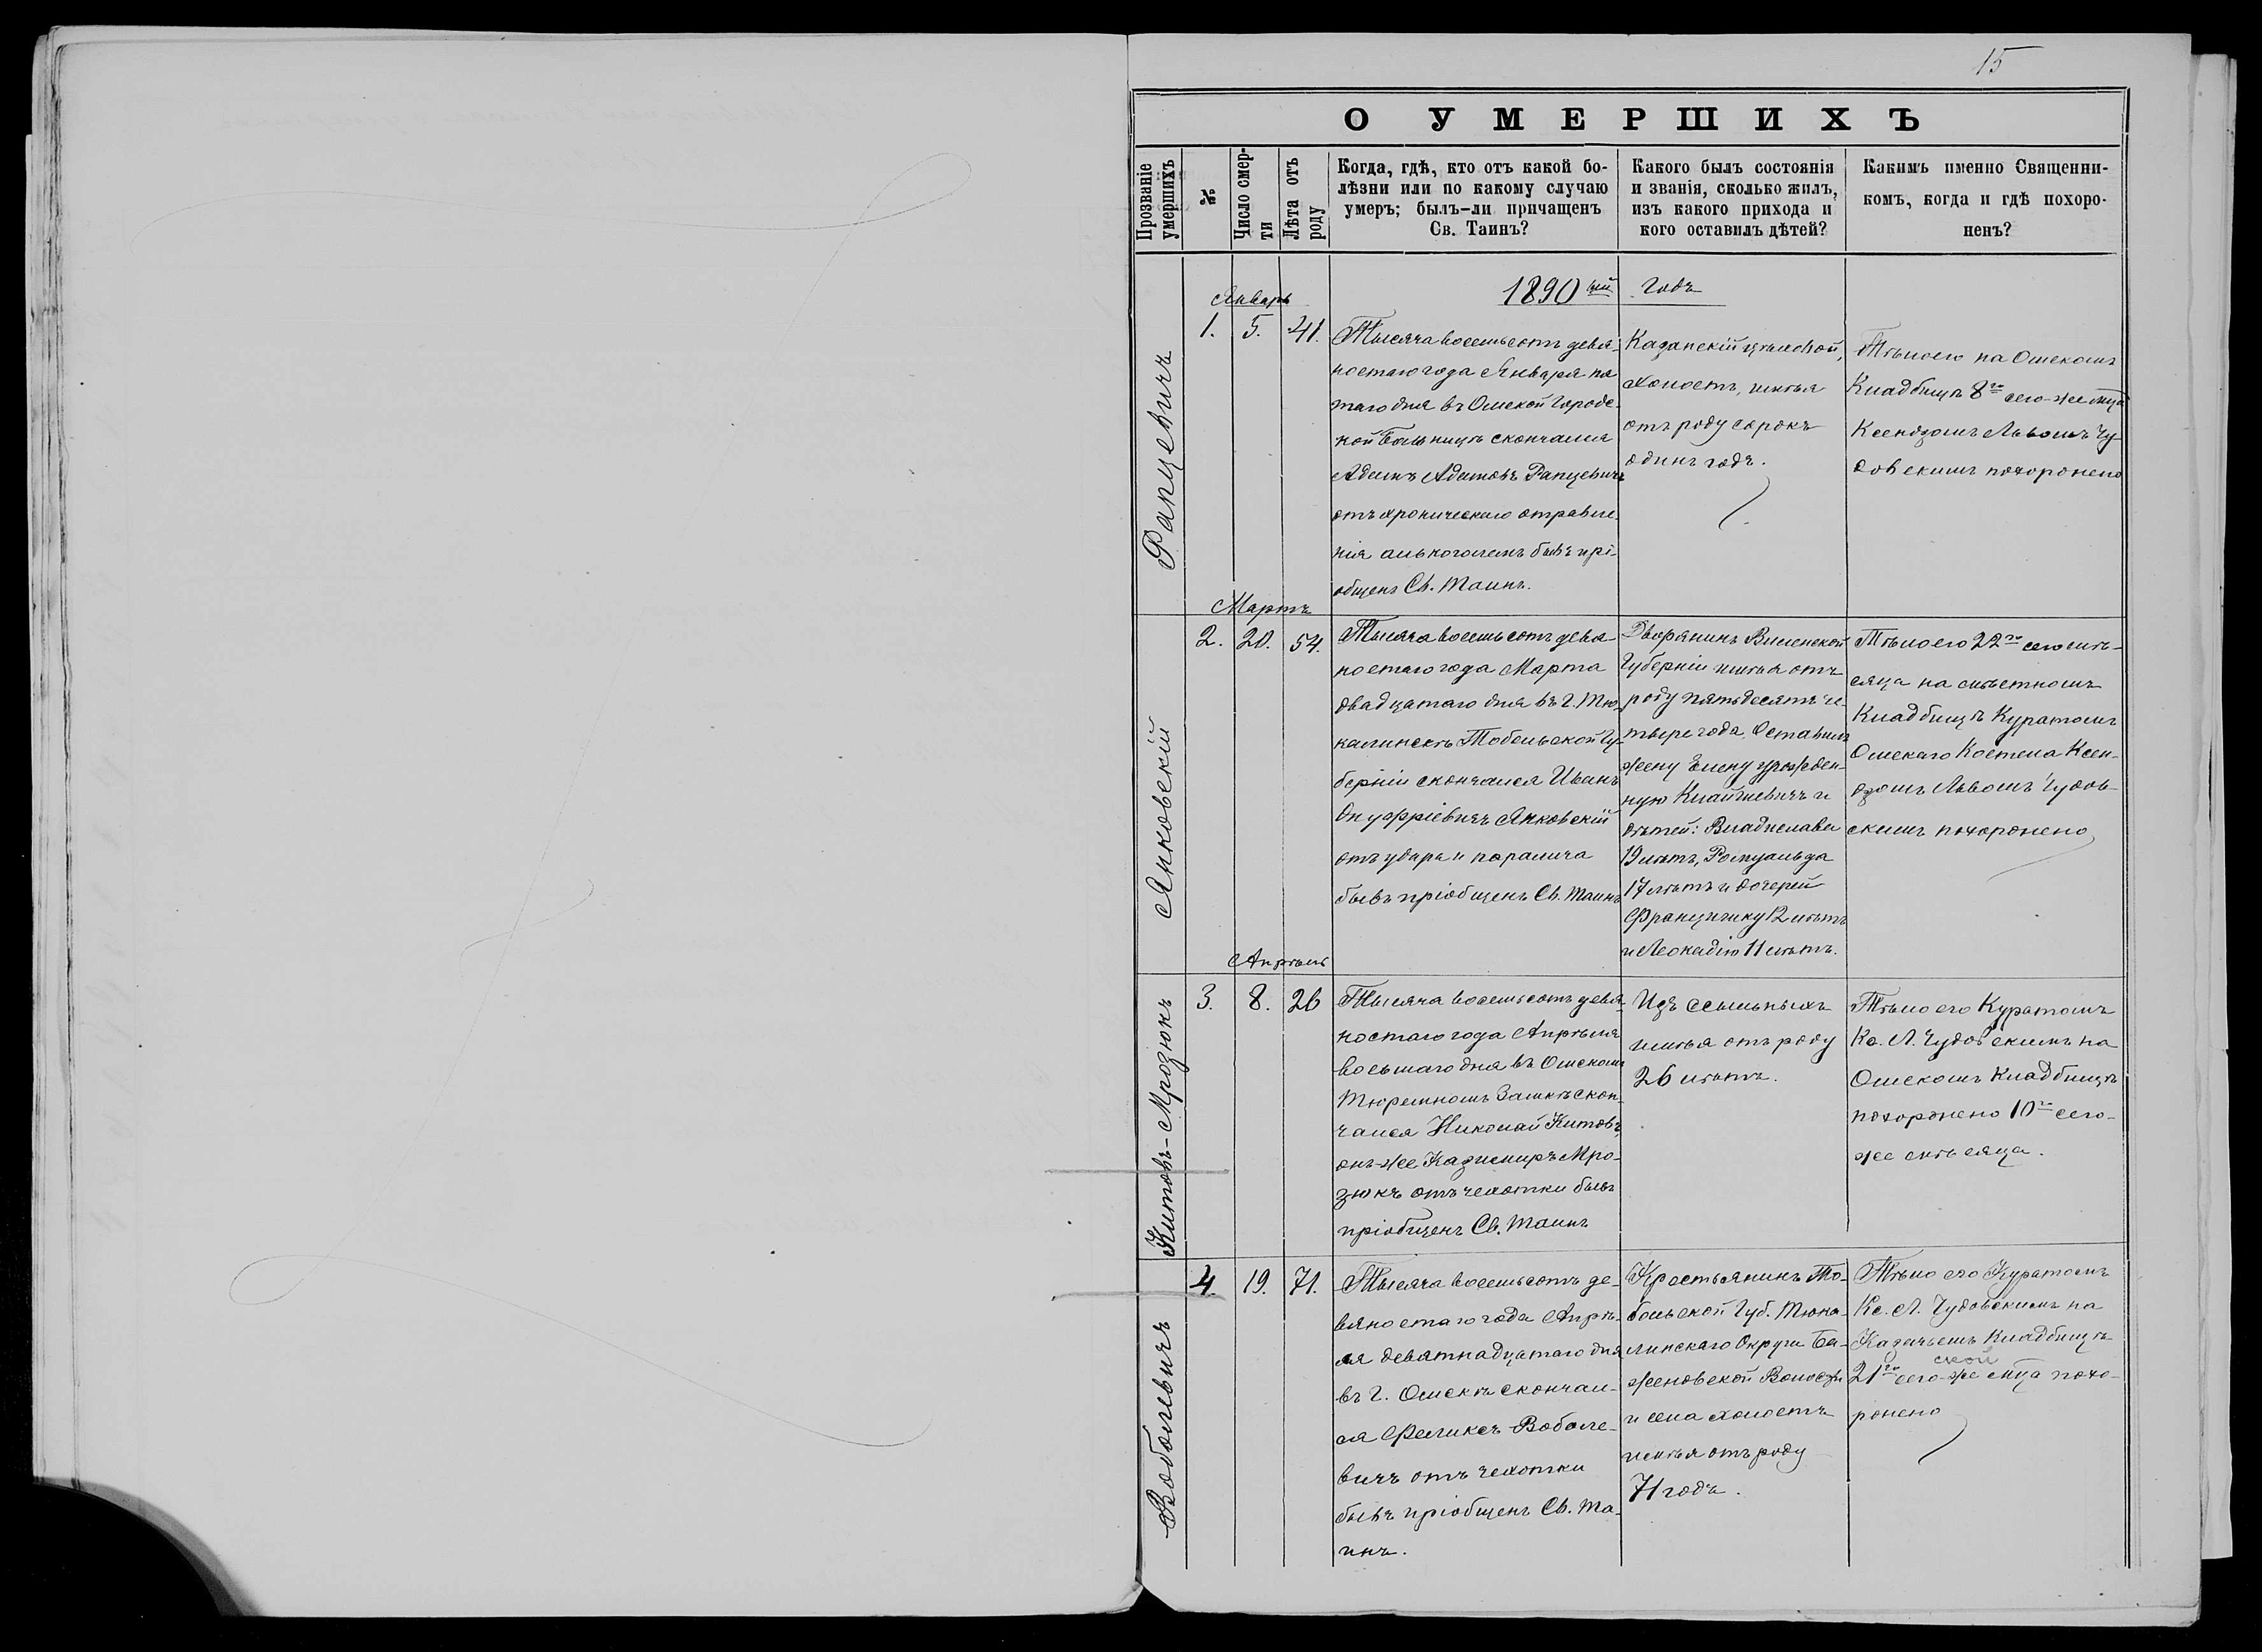 15
О УМЕРШИХЪ
Прозваніе
умершихъ
№
Число смер-
ти
Лѣта отъ
роду
Когда, гдѣ, кто отъ какой бо-
лѣзни или по какому случаю
умеръ; былъ-ли причащенъ
Св. Таинъ?
Какого былъ состоянія
и званія, сколько жилъ,
изъ какого прихода и
кого оставилъ дѣтей?
Какимъ именно Священни-
комъ, когда и гдѣ похоро-
ненъ?
1890ый годъ
Январь
Рапцевичъ
1. 5. 41.
Тысяча восемьсотъ девя-
ностаго года Января пя
таго дня въ Омской Городс-
кой Больницѣ скончался
Адамъ Адамовъ Рапцевичъ
отъ хроническаго отравле-
нія алькоголемъ бывъ прі-
общенъ Св. Таинъ.
Казанскій цеховой,
холостъ, имѣя
отъ роду сорокъ
одинъ годъ.
Тѣло его на Омскомъ
Кладбищѣ 8го сего-же мца
Ксендзомъ Львомъ Чу-
довскимъ похоронено
Мартъ
Янковскій
2. 20. 54.
Тысяча восемьсотъ девя-
ностаго года Марта
двадцатаго дня въ г. Тю-
калинскѣ Тобольской Гу-
берніи скончался Иванъ
Онуфріевичъ Янковскій
отъ удара и паралича
бывъ пріобщенъ Св. Таинъ
Дворянинъ Виленской
Губерніи имѣя отъ
роду пятьдесятъ че-
тыре года. Оставилъ
жену Елену урожден-
ную и
дѣтей: Владислава
19 лѣтъ, Ромуальда
17 лѣтъ и дочерей
Францишку 12 лѣтъ
и Леокадію 11 лѣтъ.
Тѣло его 22го сего мѣ-
сяца на мѣстномъ
Кладбищѣ Куратомъ
Омскаго Костела Ксен-
дзомъ Львомъ Чудов-
скимъ похоронено
Апрѣль
Китовъ-Мрозюкъ
3. 8. 26
Тысяча восемьсотъ девя-
ностаго года Апрѣля
восьмаго дня въ Омскомъ
Тюремномъ Замкѣ скон-
чался Николай Китовъ,
онъ-же Казимиръ Мро-
зюкъ отъ чахотки бывъ
пріобщенъ Св. Таинъ
Изъ ссыльныхъ
имѣя отъ роду
26 лѣтъ.
Тѣло его Куратомъ
Кс. Л. Чудовскимъ на
Омскомъ Кладбищѣ
похоронено 10го сего-
же мѣсяца.
Воболевичъ
4. 19. 71.
Тысяча восемьсотъ де-
вяностаго года Апрѣ-
ля девятнадцатаго дня
въ г. Омскѣ скончал-
ся Феликсъ Воболе-
вичъ отъ чахотки
бывъ пріобщенъ Св. Та-
инъ.
Крестьянинъ То-
больской Губ. Тюка-
линскаго Округа Ба-
женовской Волости
и села холостъ
имѣя отъ роду
71 годъ.
Тѣло его Куратомъ
Кс. Л. Чудовскимъ на
Казачьемъ Кладбищѣ
21го сего-же мца похо-
ронено